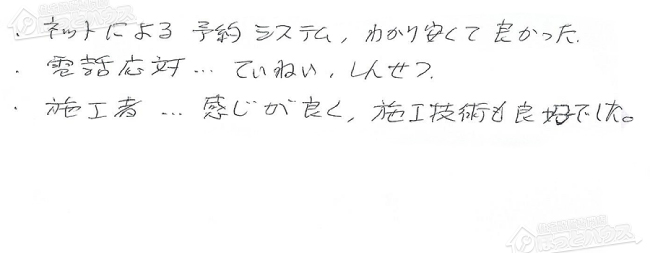 ・ネットによる予約システム，わかり安くて良かった．
・電話応対…ていねい，しんせつ．
・施工者…感じが良く，施工技術も良好でした。